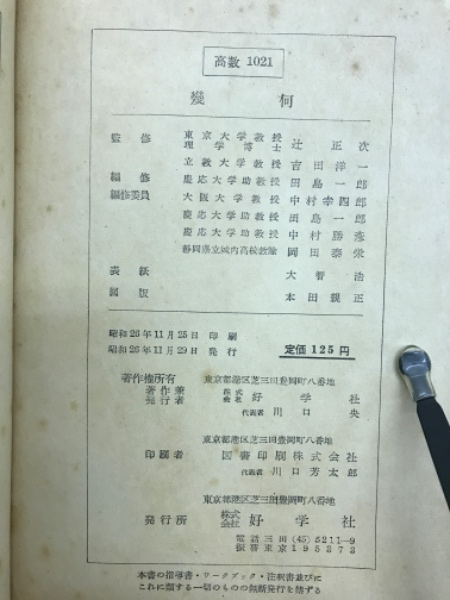 高数 1021
幾何
監修 東京大学教授 理学博士 辻正次
立教大学教授 吉田洋一
編修 慶応大学助教授 田島一郎
編修委員 大阪大学教授 中村幸四郎
慶応大学助教授 田島一郎
慶応大学助教授 中村勝彦
静岡県立城内高校教諭 岡田泰栄
表紙 大智浩
図版 本田親正
昭和26年11月25日 印刷
昭和26年11月29日 発行
定価 125円
著作権所有
東京都港区芝三田豊岡町八番地
著作兼発行者 株式会社 好学社
代表者 川口央
東京都港区芝三田豊岡町八番地
印刷者 図書印刷株式会社
代表者 川口芳太郎
東京都港区芝三田豊岡町八番地
発行所 株式会社 好学社
電話三田(45)5211-9
振替東京195373
本書の指導書・ワークブック・注釈書並びに
これに類する一切のものの無断発行を禁ずる